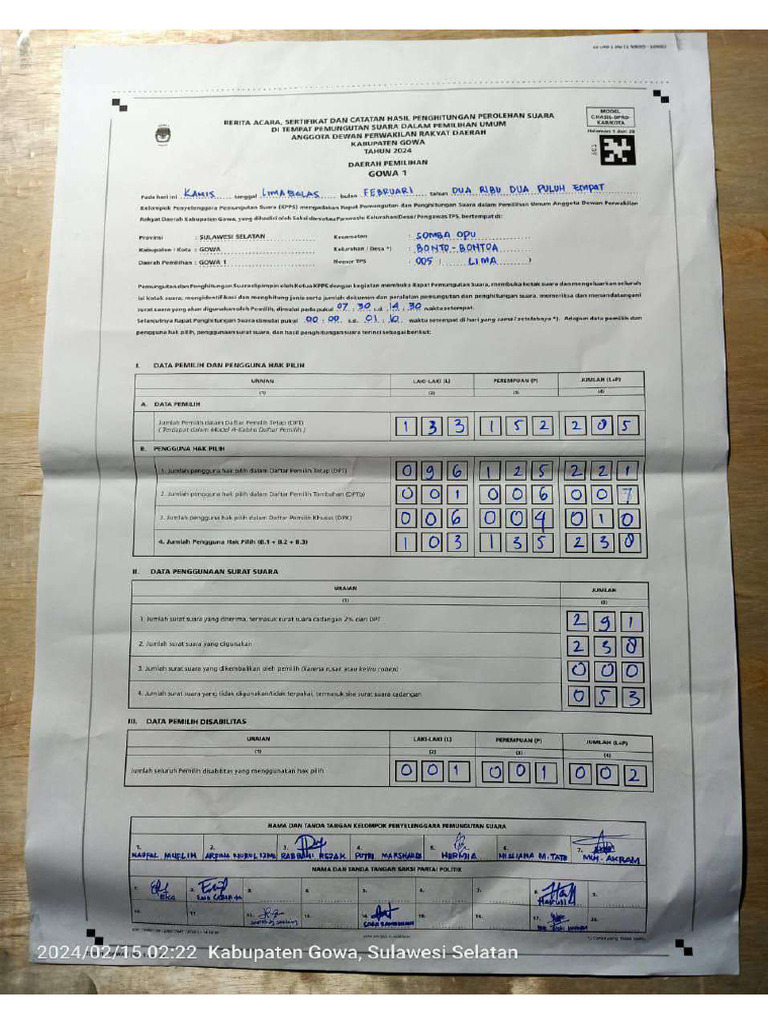 BERITA ACARA, SERTIFIKAT DAN CATATAN HASIL PENGHITUNGAN PEROLEHAN SUARA
DI TEMPAT PEMUNGUTAN SUARA DALAM PEMILIHAN UMUM
ANGGOTA DEWAN PERWAKILAN RAKYAT DAERAH
KABUPATEN GOWA
TAHUN 2024
MODEL
C.HASIL-DPRD-
KAB/KOTA
Halaman 1 dari 28
DAERAH PEMILIHAN
GOWA 1
Pada hari ini KAMIS tanggal LIMABELAS bulan FEBRUARI tahun DUA RIBU DUA PULUH EMPAT
Kelompok Penyelenggara Pemungutan Suara (KPPS) mengadakan Rapat Pemungutan dan Penghitungan Suara dalam Pemilihan Umum Anggota Dewan Perwakilan
Rakyat Daerah Kabupaten Gowa, yang dihadiri oleh Saksi dan Pengawas TPS, bertempat di:
Provinsi : SULAWESI SELATAN Kecamatan : SOMBA OPU
Kabupaten / Kota : GOWA Kelurahan / Desa *) : BONTO-BONTOA
Daerah Pemilihan : GOWA 1 Nomor TPS 005 : LIMA )
Pemungutan dan Penghitungan Suara dipimpin oleh Ketua KPPS dengan kegiatan membuka Rapat Pemungutan Suara, membuka kotak suara dan mengeluarkan seluruh
isi kotak suara, mengidentifikasi dan menghitung jenis serta jumlah dokumen dan peralatan pemungutan dan penghitungan suara, memeriksa dan menandatangani
surat suara yang akan digunakan oleh Pemilih, dimulai pada pukul 07 : 30 s.d 14 : 30 waktu setempat.
Selanjutnya Rapat Penghitungan Suara dimulai pukul 00 : 00 s.d. 01 : 10 waktu setempat di hari yang sama / sesudahnya *). Adapun data pemilih dan
pengguna hak pilih, penggunaan surat suara, dan hasil penghitungan suara terinci sebagai berikut:
I. DATA PEMILIH DAN PENGGUNA HAK PILIH
URAIAN LAKI-LAKI (L) PEREMPUAN (P) JUMLAH (L+P)
(1) (2) (3) (4)
A. DATA PEMILIH
Jumlah Pemilih dalam Daftar Pemilih Tetap (DPT) 1 3 3 1 5 2 2 8 5
(Terdapat dalam Model A-Kabko Daftar Pemilih)
B. PENGGUNA HAK PILIH
1. Jumlah pengguna hak pilih dalam Daftar Pemilih Tetap (DPT) 0 9 6 1 2 5 2 2 1
2. Jumlah pengguna hak pilih dalam Daftar Pemilih Tambahan (DPTb) 0 0 1 0 0 6 0 0 7
3. Jumlah pengguna hak pilih dalam Daftar Pemilih Khusus (DPK) 0 0 6 0 0 4 0 1 0
4. Jumlah Pengguna Hak Pilih (B.1 + B.2 + B.3) 1 0 3 1 3 5 2 3 8
II. DATA PENGGUNAAN SURAT SUARA
URAIAN JUMLAH
(1) (2)
1. Jumlah surat suara yang diterima, termasuk surat suara cadangan 2% dari DPT 2 9 1
2. Jumlah surat suara yang digunakan 2 3 8
3. Jumlah surat suara yang dikembalikan oleh pemilih (karena rusak atau keliru coblos) 0 0 0
4. Jumlah surat suara yang tidak digunakan/tidak terpakai, termasuk sisa surat suara cadangan 0 5 3
III. DATA PEMILIH DISABILITAS
URAIAN LAKI-LAKI (L) PEREMPUAN (P) JUMLAH (L+P)
(1) (2) (3) (4)
Jumlah seluruh Pemilih disabilitas yang menggunakan hak pilih 0 0 1 0 0 1 0 0 2
NAMA DAN TANDA TANGAN KELOMPOK PENYELENGGARA PEMUNGUTAN SUARA
1. 2. 3. 4. 5. 6. 7.
NAUFAL MUFLIH RABBANI REZAK PUTRI HERMIA M. TATO MUH. AKRAM
NAMA DAN TANDA TANGAN SAKSI PARTAI POLITIK
1. 2. 3. 4. 5. 6. 7. 8. 9.
EKA
10. 11. 12. 13. 14. 15. 16. 17. 18.
2024/02/15 02:22 Kabupaten Gowa, Sulawesi Selatan